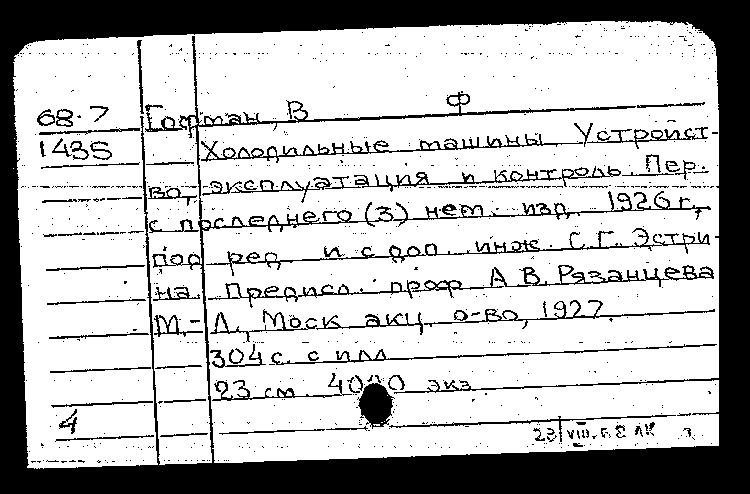 68.7 Гофман, В Ф
1435 Холодильные машины Устройст-
во, эксплуатация и контроль. Пер.
с последнего (3) нем. изд. 1926 г.,
под ред. и с доп. инж. С.Г. Эстри-
на. Предисл. проф А В. Рязанцева
М.-Л., Моск акц. о-во, 1927.
304 с. с илл
23 см. 4000 экз
4
23/VIII.